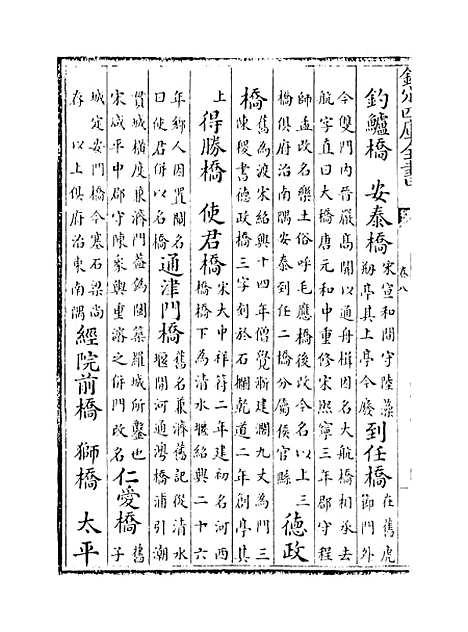 欽定四庫全書
卷八
釣鱸橋 安泰橋宋宣和間守陸藻剏亭其上亭今廢到任橋在舊虎節門外
今雙門內晉嚴高開以通舟楫因名大航橋相承去航字直曰大橋唐元和中重修宋熙寧三年郡守程
師孟改名樂土俗呼毛應橋後改今名以上三橋俱府治南隅安泰到任二橋分屬侯官縣 德政
橋舊為渡宋紹興十四年僧覺漸建濶九丈為門三陳書德政橋三字刻於石欄乾道二年創亭其
上 得勝橋 使君橋宋大中祥符二年建初名河西橋橋下為清水堰紹興二十六
年鄉人因置閘名曰使君併以名橋通津門橋舊名兼濟舊記從清水堰開河通灣橋浦引潮
貫城橫度兼濟門葢偽閩築羅城所鑿也宋咸平中郡守陳象輿重濬之併門改名仁愛橋舊子
城定安門橋今塞石梁尚存 以上俱府治東南隅經院前橋 獅橋 太平